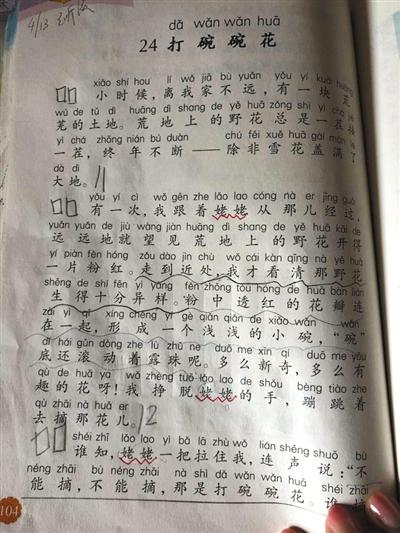 4/13
dǎ wǎn wǎn huā
24 打 碗 碗 花
xiǎo shí hou lí wǒ jiā bù yuǎn yǒu yí kuài huāng
小时候，离我家不远，有一块荒
wú de tǔ dì huāng dì shang de yě huā zǒng shì yì chá
芜的土地。荒地上的野花总是一茬接
yì chá zhōng nián bú duàn chú fēi xuě huā gài mǎn le
一茬，终年不断——除非雪花盖满了
dà dì
大地。
yǒu yí cì wǒ gēn zhe lǎo lao cóng nà er jīng guò
有一次，我跟着姥姥从那儿经过，
yuǎn yuǎn de jiù wàng jiàn huāng dì shang de yě huā kāi de
远远地就望见荒地上的野花开得
yí piàn fěn hóng zǒu dào jìn chù wǒ cái kàn qīng nà yě huā
一片粉红。走到近处，我才看清那野花
shēng de shí fēn yì yàng fěn zhōng tòu hóng de huā bàn lián
生得十分异样。粉中透红的花瓣连
zài yì qǐ xíng chéng yí gè qiǎn qiǎn de xiǎo wǎn wǎn
在一起，形成一个浅浅的小碗，“碗”
dǐ hái gǔn dòng zhe lù zhū ne duō me xīn qí duō me yǒu
底还滚动着露珠呢。多么新奇，多么有
qù de huā ya wǒ zhèng tuō lǎo lao de shǒu bèng tiào zhe
趣的花呀！我挣脱姥姥的手，蹦跳着
qù zhāi nà huā er
去摘那花儿。
shéi zhī lǎo lao yì bǎ lā zhù wǒ lián shēng shuō bù
谁知，姥姥一把拉住我，连声说：“不
néng zhāi bù néng zhāi nà shì dǎ wǎn wǎn huā shéi zhāi
能摘，不能摘，那是打碗碗花。谁摘
104